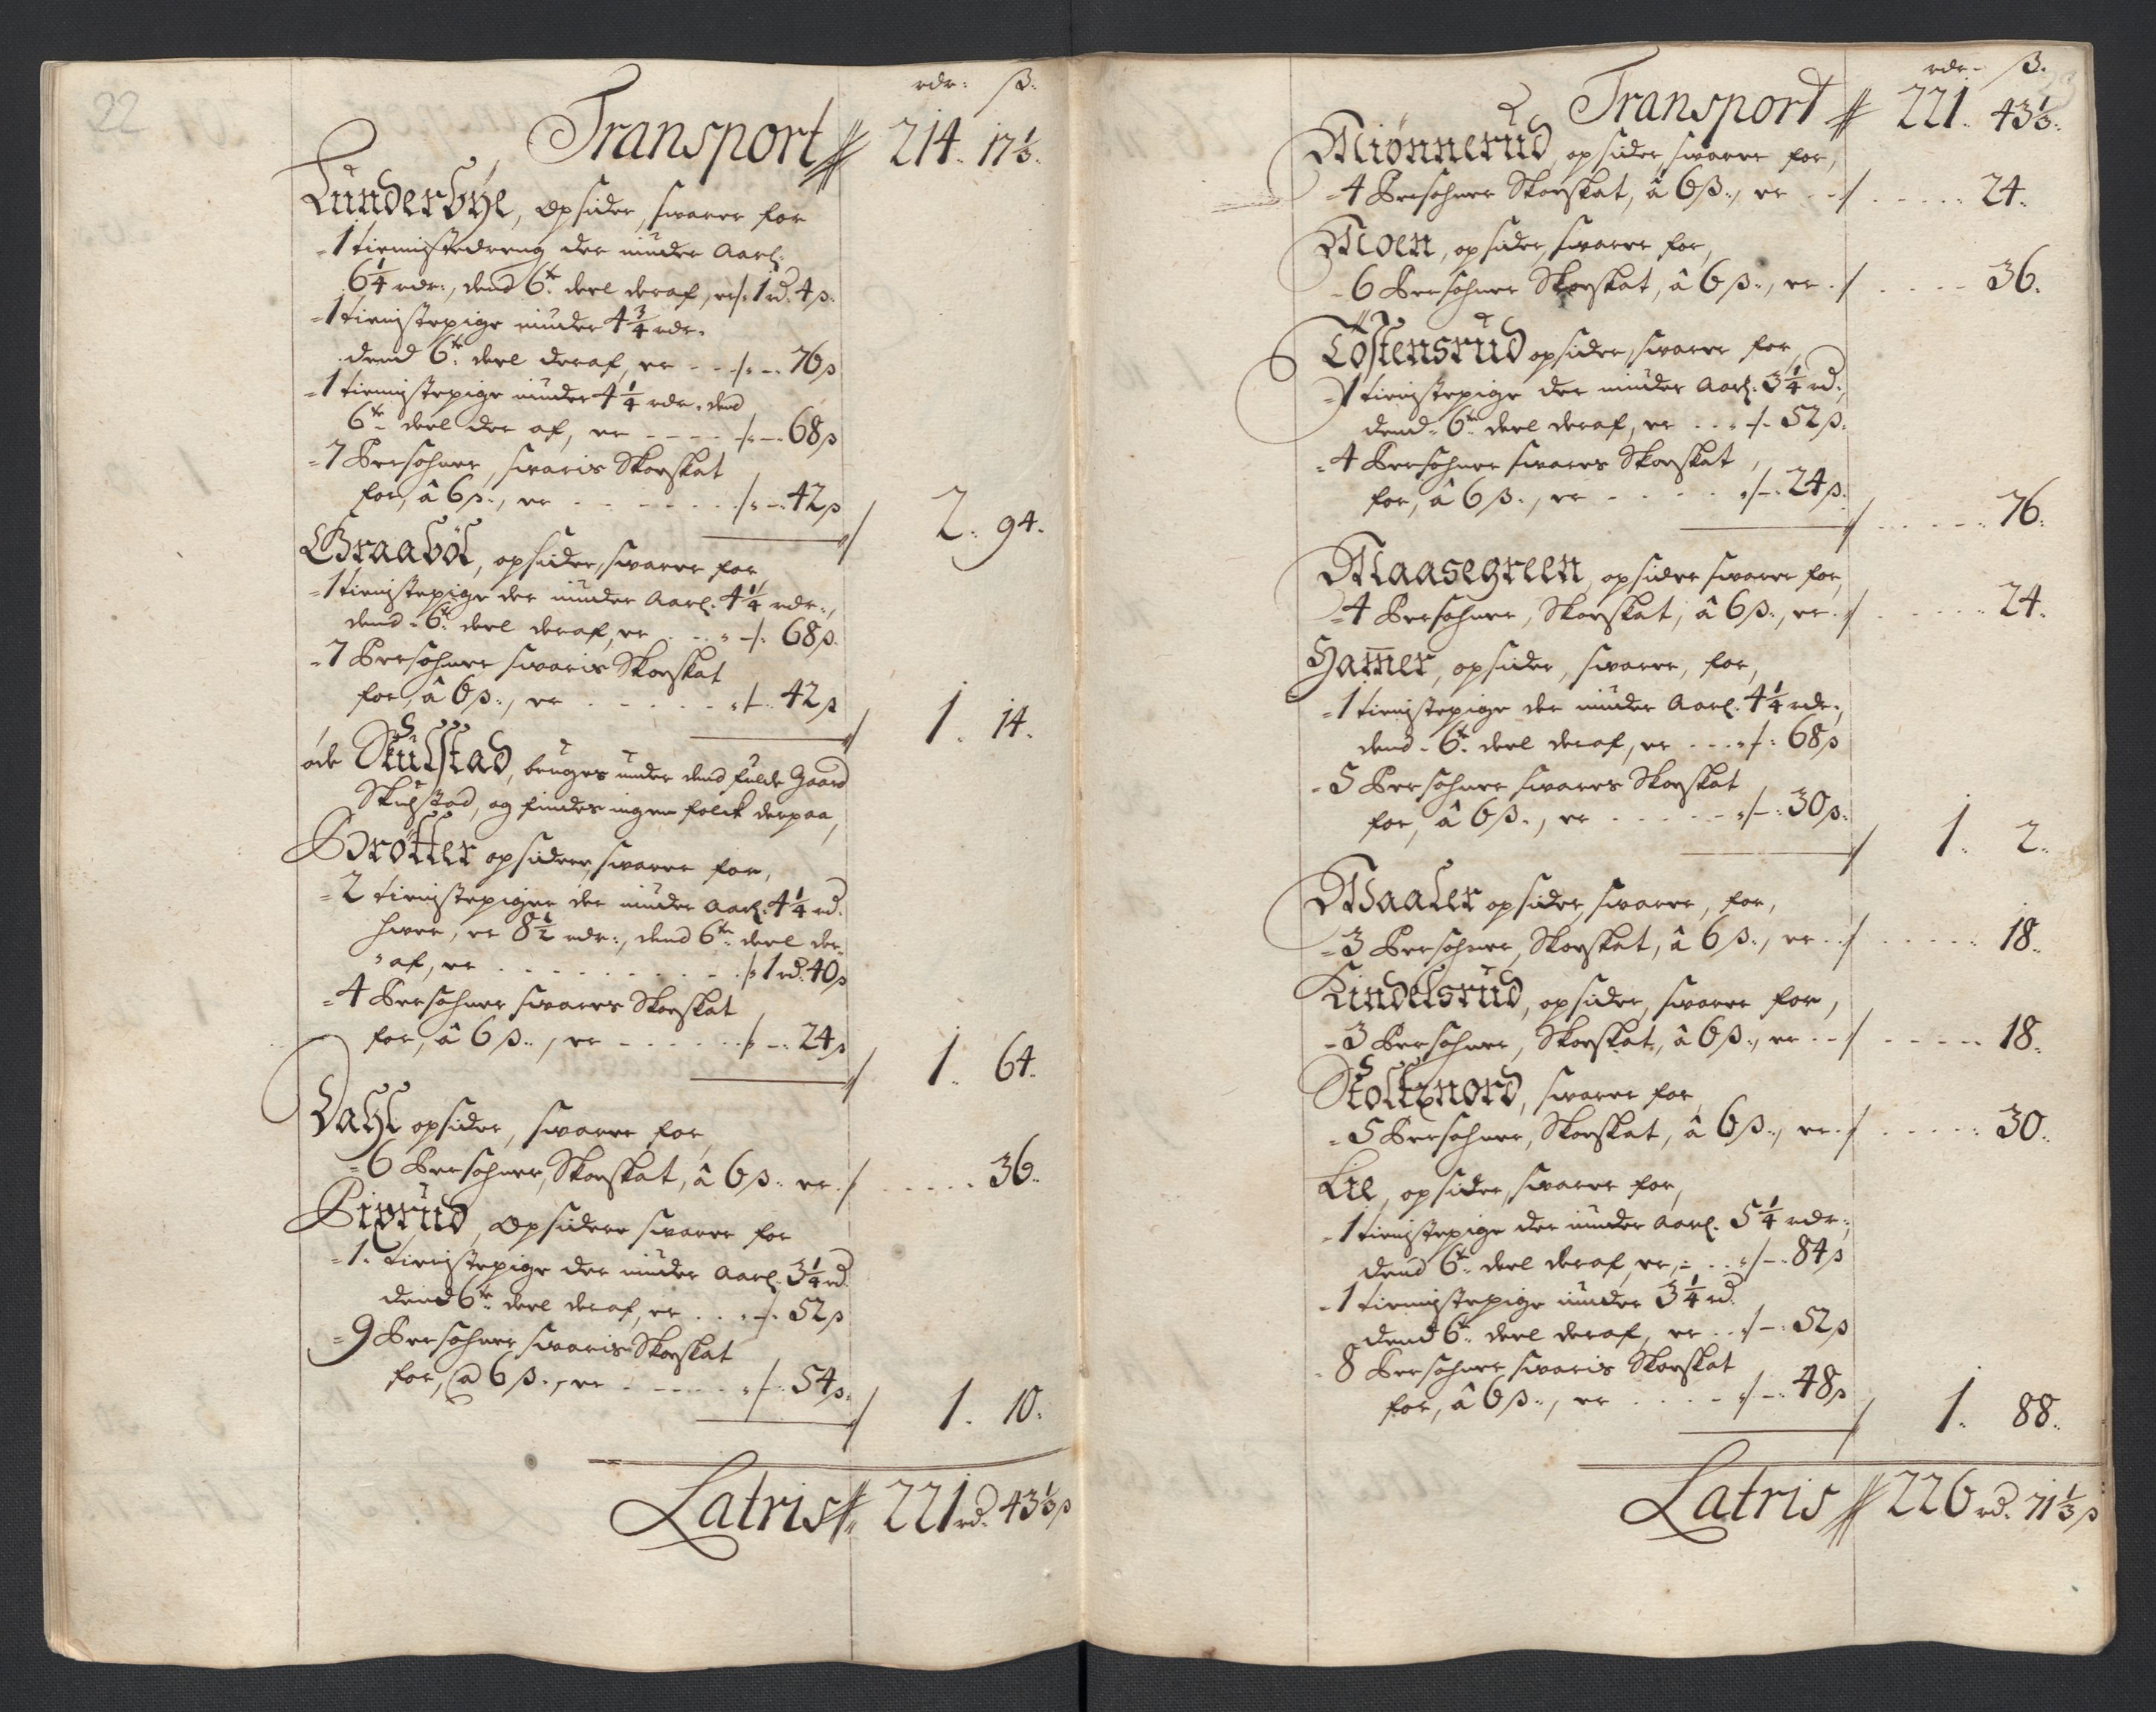 22
rdr: ß:
Transport 214. 17⅓.
Lunderbÿe, opsider, svarer for
- 1 tienistedreng der niuder Aarl:
6¼ rdr:, dend 6te deel deraf, er 1 rd. 4 ß.
- 1 tienistepige niuder 4¾ rdr.
dend 6te deel deraf, er - - - 76 ß
- 1 tienistepige niuder 4¼ rdr. dend
6te deel der af, er - - - - 68 ß
- 7 Persohner, svaris Skoeskat
for, â 6 ß., er - - - - - 42 ß
2. 94.
Graaböl, opsider, svarer for
- 1 tienistepige der niuder Aarl. 4¼ rdr.,
dend 6te deel deraf, er - - - 68 ß.
- 7 Persohner svaris Skoeskat
for, â 6 ß., er - - - - - 42 ß
1. 14.
öde Skulstad, bruges under dend fulde Gaard
Skulstad, og findes ingen folck derpaa,
Brötter opsidere, svarer for,
- 2 tienistepiger der niuder Aarl: 4¼ rd.
hver, er 8½ rdr:, dend 6te deel der
" af, er - - - - - - 1 rd. 40 ß
- 4 Persohner svares Skoeskat
for, â 6 ß., er - - - - - 24 ß
1. 64.
Dahl opsider, svarer for,
- 6 Persohner, Skoeskat, â 6 ß. er - - - - 36.
Pixrud, Opsidere svarer for
- 1. tienistepige der niuder Aarl. 3¼ rd.
dend 6te deel deraf, er - - - 52 ß
- 9 Persohner svaris Skoeskat
for, a 6 ß., er - - - - - 54 ß.
1. 10.
Latris 221 rd. 43⅓ ß
rdr- ß.
Transport 221. 43⅓.
Miönnerud, opsider, svarer for,
- 4 Persohner Skoeskat, â 6 ß., er - - - - 24.
Moen, opsider, svarer for,
- 6 Persohner Skoeskat, â 6 ß., er - - - - 36.
Töstensrud opsider, svarer for,
- 1 tienistepige der niuder Aarl. 3¼ rd.,
dend 6te deel deraf, er - - - 52 ß.
- 4 Persohner svares Skoeskat,
for, â 6 ß., er - - - - - 24 ß.
- - - - 76.
Maasegreen, opsider svarer for,
- 4 Persohner, Skoeskat, â 6 ß., er - - - - 24.
Ham̅er, opsider, svarer, for,
- 1 tienistepige der niuder Aarl. 4¼ rdr.,
dend 6te deel deraf, er - - - 68 ß
- 5 Persohner svares Skoeskat
for, â 6 ß., er - - - - - 30 ß.
1. 2.
Waaler opsider, svarer, for,
- 3 Persohner, Skoeskat, â 6 ß., er - - - - 18.
Kindelsrud, opsider, svarer for,
- 3 Persohner, Skoeskat, â 6 ß., er - - - - 18.
Stoltznord, svarer for,
- 5 Persohner, Skoeskat, â 6 ß., er - - - - 30.
Lie, opsider, svarer for,
- 1 tienistepige der niuder Aarl. 5¼ rdr.,
dend 6te deel deraf, er, - - - 84 ß
- 1 tienistepige niuder 3¼ rd.
dend 6te deel deraf, er - - - 52 ß
- 8 Persohner, svaris Skoeskat
for, â 6 ß., er - - - - 48 ß
1. 88.
Latris 226 rd. 71⅓ ß